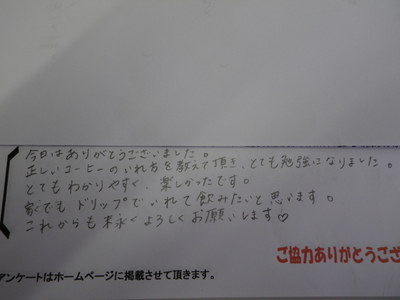 今日はありがとうございました。
正しいコーヒーのいれ方を教えて頂き、とても勉強になりました。
とてもわかりやすく、楽しかったです。
家でもドリップでいれて飲みたいと思います。
これからも末永くよろしくお願いします♡
ご協力ありがとうござ
アンケートはホームページに掲載させて頂きます。